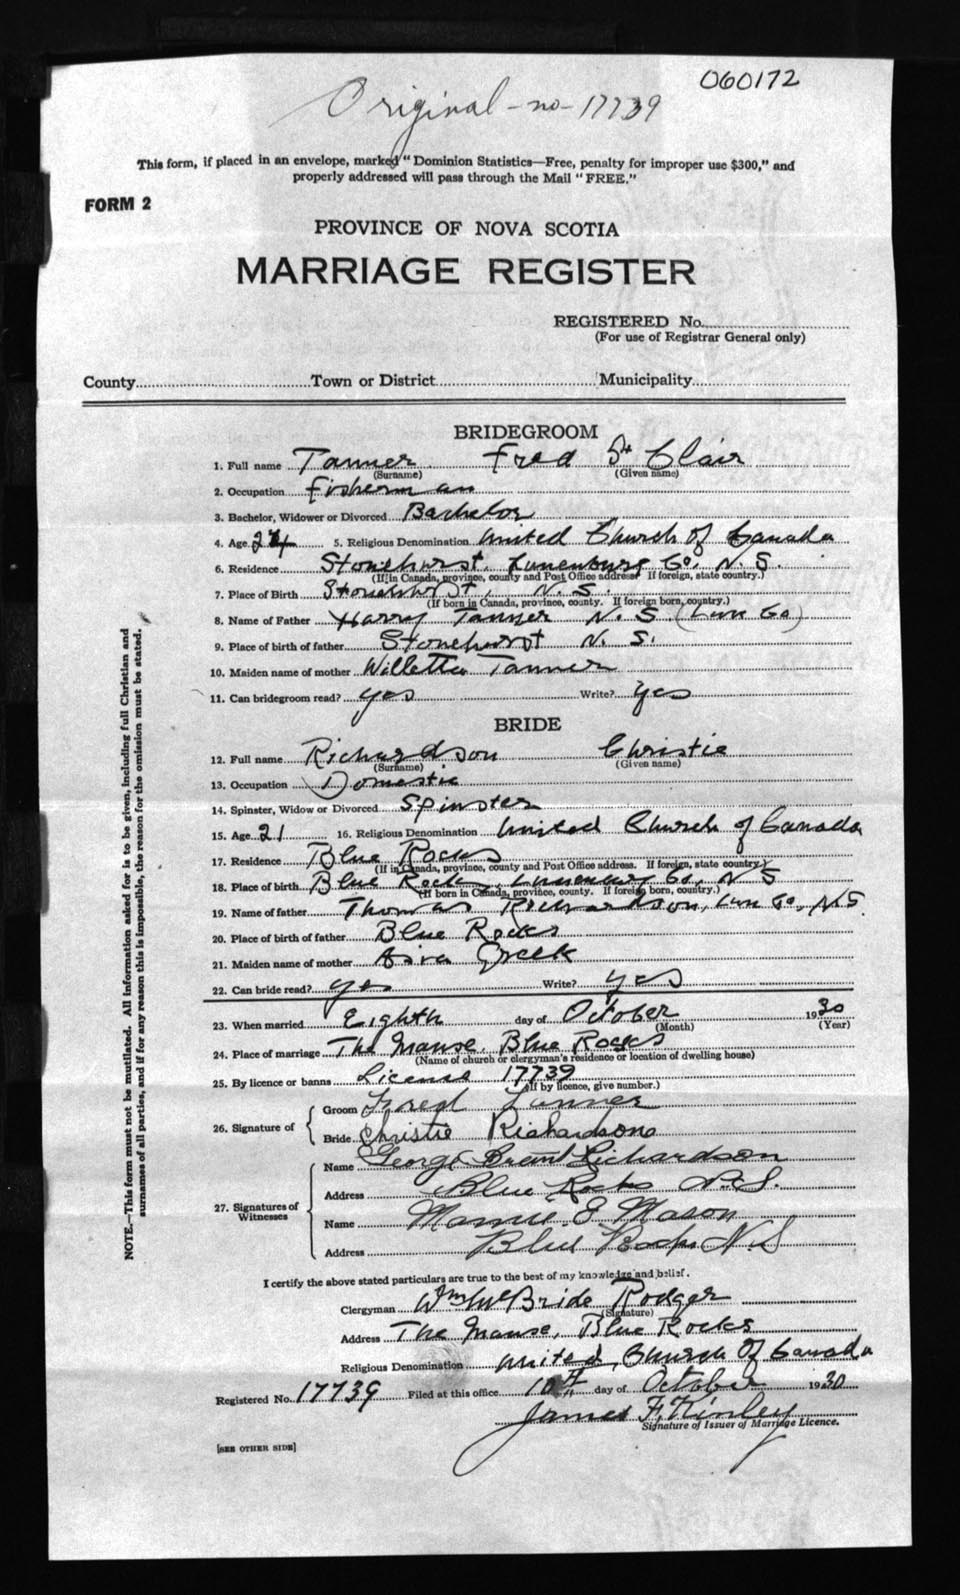 060172
Original - no - 17739
This form, if placed in an envelope, marked "Dominion Statistics—Free, penalty for improper use $300," and
properly addressed will pass through the Mail "FREE."
FORM 2
PROVINCE OF NOVA SCOTIA
MARRIAGE REGISTER
REGISTERED No.
(For use of Registrar General only)
County Town or District Municipality
BRIDEGROOM
1. Full name Tanner Fred St Clair
(Surname) (Given name)
2. Occupation Fisherman
3. Bachelor, Widower or Divorced Bachelor
4. Age 24 5. Religious Denomination United Church of Canada
6. Residence Stonehurst, Lunenburg Co. N.S.
(If in Canada, province, county and Post Office address. If foreign, state country.)
7. Place of Birth Stonehurst, N.S.
(If born in Canada, province, county. If foreign born, country.)
8. Name of Father Harry Tanner N.S (Lun Co)
9. Place of birth of father Stonehurst N.S.
10. Maiden name of mother Willetta Tanner
11. Can bridegroom read? yes Write? yes
BRIDE
12. Full name Richardson Christie
(Surname) (Given name)
13. Occupation Domestic
14. Spinster, Widow or Divorced Spinster
15. Age 21 16. Religious Denomination United Church of Canada
17. Residence Blue Rocks
(If in Canada, province, county and Post Office address. If foreign, state country.)
18. Place of birth Blue Rocks, Lunenburg Co, N S
(If born in Canada, province, county. If foreign born, country.)
19. Name of father Thomas Richardson, Lun Co, N.S.
20. Place of birth of father Blue Rocks
21. Maiden name of mother Greek
22. Can bride read? yes Write? yes
23. When married Eighth day of October 1930
(Month) (Year)
24. Place of marriage The Manse, Blue Rocks
(Name of church or clergyman's residence or location of dwelling house)
25. By licence or banns License 17739
(If by licence, give number.)
26. Signature of
Groom Fred Tanner
Bride Christie Richardson
27. Signatures of Witnesses
Name George Brent Richardson
Address Blue Rocks N.S.
Name Mamie E Mason
Address Blue Rocks N.S
I certify the above stated particulars are true to the best of my knowledge and belief.
Clergyman Wm McBride Rodger
(Signature)
Address The Manse, Blue Rocks
Religious Denomination United Church Of Canada
Registered No. 17739 Filed at this office 10th day of October 1930
James F. Kinley
Signature of Issuer of Marriage Licence.
[SEE OTHER SIDE]
NOTE.—This form must not be mutilated. All information asked for is to be given, including full Christian and
surnames of all parties, and if for any reason this is impossible, the reason for the omission must be stated.